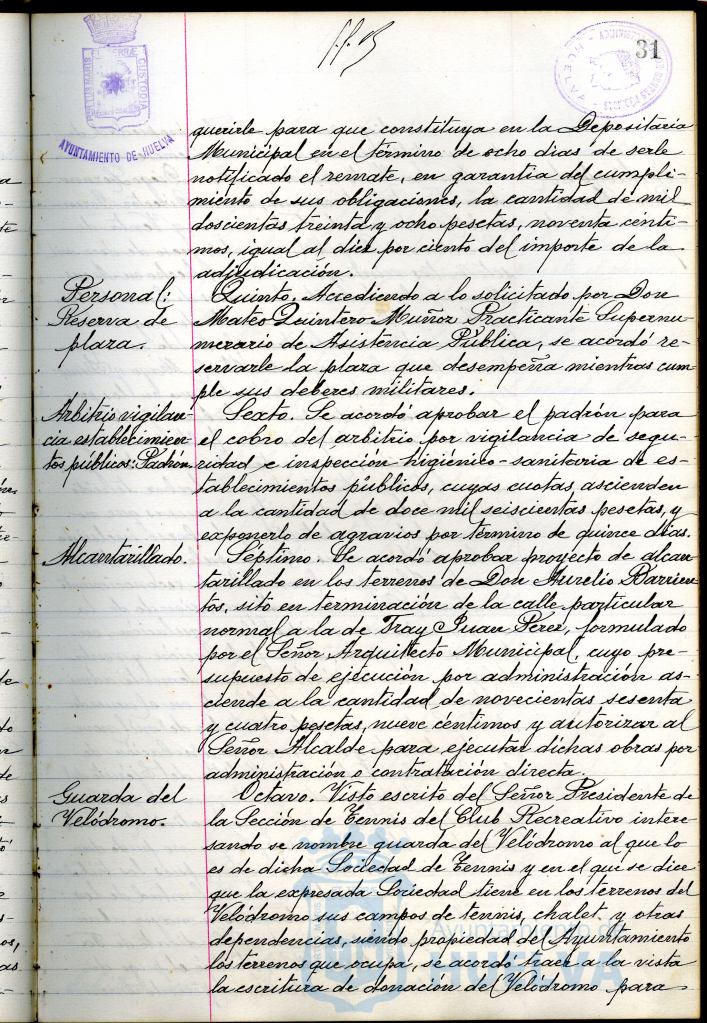 31
CUSTODIA
AYUNTAMIENTO DE HUELVA
HUELVA
querirle para que constituya en la Depositaría
Municipal en el término de ocho dias de serle
notificado el remate, en garantia del cumpli-
miento de sus obligaciones, la cantidad de mil
doscientas treinta y ocho pesetas, noventa cénti-
mos, igual al diez por ciento del importe de la
adjudicación.
Personal:
Reserva de
plaza.
Quinto. Accediendo a lo solicitado por Don
Mateo Quintero Muñoz Practicante Supernu-
merario de Asistencia Pública, se acordó re-
servarle la plaza que desempeña mientras cum-
ple sus deberes militares.
Arbitrio vigilan-
cia establecimien-
tos públicos: Padrón.
Sexto. Se acordó aprobar el padrón para
el cobro del arbitrio por vigilancia de segu-
ridad e inspección higiénico-sanitaria de es-
tablecimientos públicos, cuyas cuotas ascienden
a la cantidad de doce mil seiscientas pesetas, y
exponerlo de agravios por término de quince dias.
Alcantarillado.
Séptimo. Se acordó aprobar proyecto de alcan-
tarillado en los terrenos de Don Aurelio Barrien-
tos, sito en terminación de la calle particular
normal a la de Fray Juan Pérez, formulado
por el Señor Arquitecto Municipal, cuyo pre-
supuesto de ejecución por administración as-
ciende a la cantidad de novecientas sesenta
y cuatro pesetas, nueve céntimos y autorizar al
Señor Alcalde para ejecutar dichas obras por
administración o contratación directa.
Guarda del
Velódromo.
Octavo. Visto escrito del Señor Presidente de
la Sección de Tennis del Club Recreativo intere-
sando se nombre guarda del Velódromo al que lo
es de dicha Sociedad de Tennis y en el que se dice
que la expresada Sociedad tiene en los terrenos del
Velódromo sus campos de tennis, chalet y otras
dependencias, siendo propiedad del Ayuntamiento
los terrenos que ocupa, se acordó traer a la vista
la escritura de donación del Velódromo para
Ayuntamiento de
HUELVA